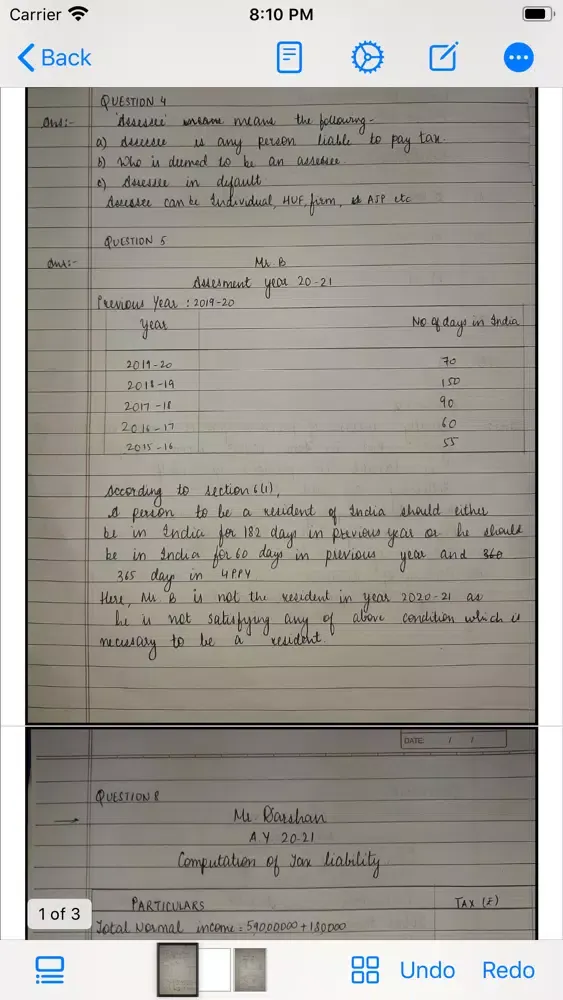 Carrier 8:10 PM
Back
QUESTION 4
Ans:- 'Assessee' means the following-
a) Assessee is any person liable to pay tax.
b) Who is deemed to be an assessee.
c) Assessee in default
Assessee can be Individual, HUF, firm, ASP etc
QUESTION 5
Ans:- Mr. B
Assesment year 20-21
Previous Year : 2019-20
Year No of days in India
2019-20 70
2018-19 150
2017-18 90
2016-17 60
2015-16 55
According to section 6(1),
A person to be a resident of India should either
be in India for 182 days in previous year or he should
be in India for 60 days in previous year and 360
365 days in 4PPY
Here, Mr B is not the resident in year 2020-21 as
he is not satisfying any of above condition which is
necessary to be a resident.
DATE: / /
QUESTION 8
Mr Darshan
A.Y 20-21
Computation of Tax liability
PARTICULARS TAX (₹)
Total Normal income = 5900000 + 180000
1 of 3
Undo Redo